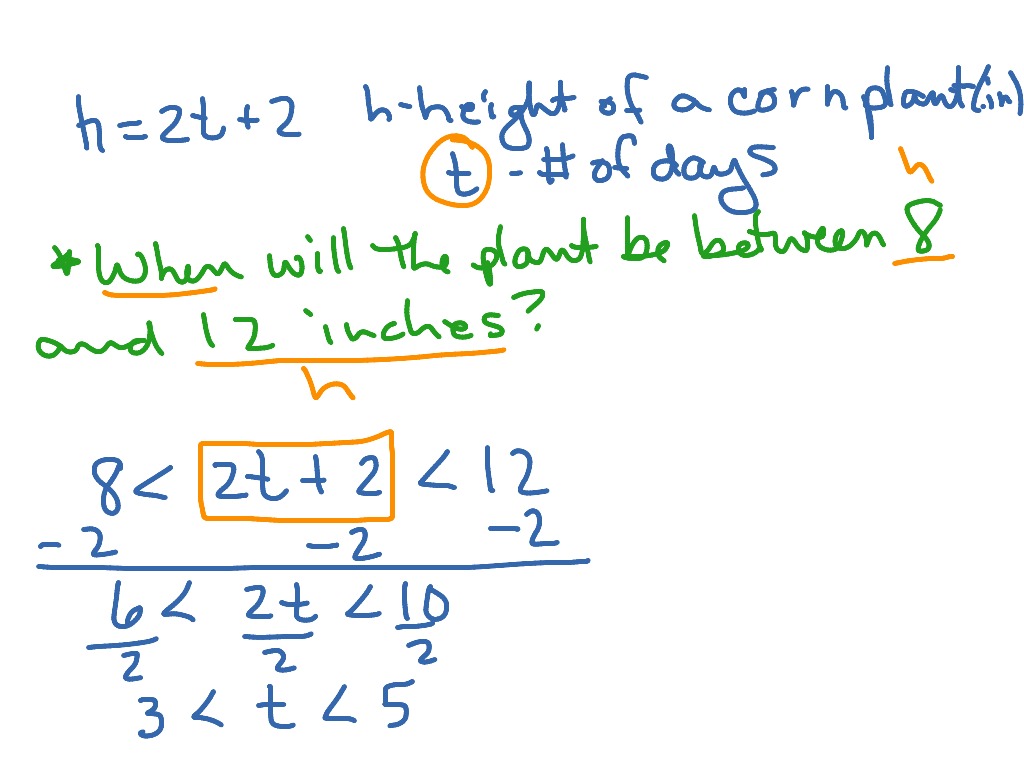 h=2t+2 h-height of a corn plant(in)
t - # of days
h
*When will the plant be between 8
and 12 inches?
h
8 < 2t + 2 < 12
- 2 - 2 - 2
6 < 2t < 10
2 2 2
3 < t < 5